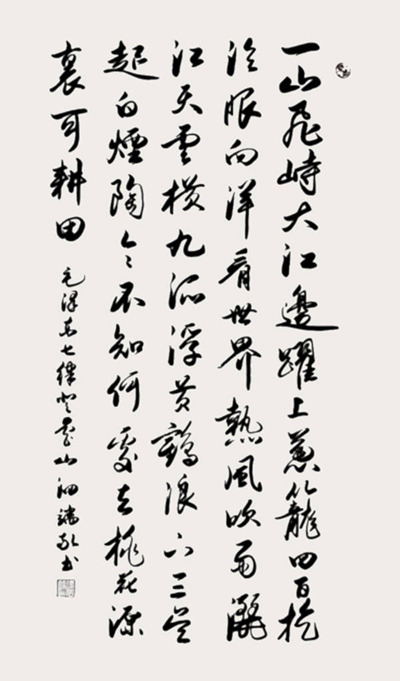 一山飛峙大江邊躍上蔥蘢四百旋
冷眼向洋看世界熱風吹雨灑
江天雲橫九派浮黃鶴浪下三吳
起白煙陶令不知何處去桃花源
裏可耕田 毛澤東七律登廬山 書